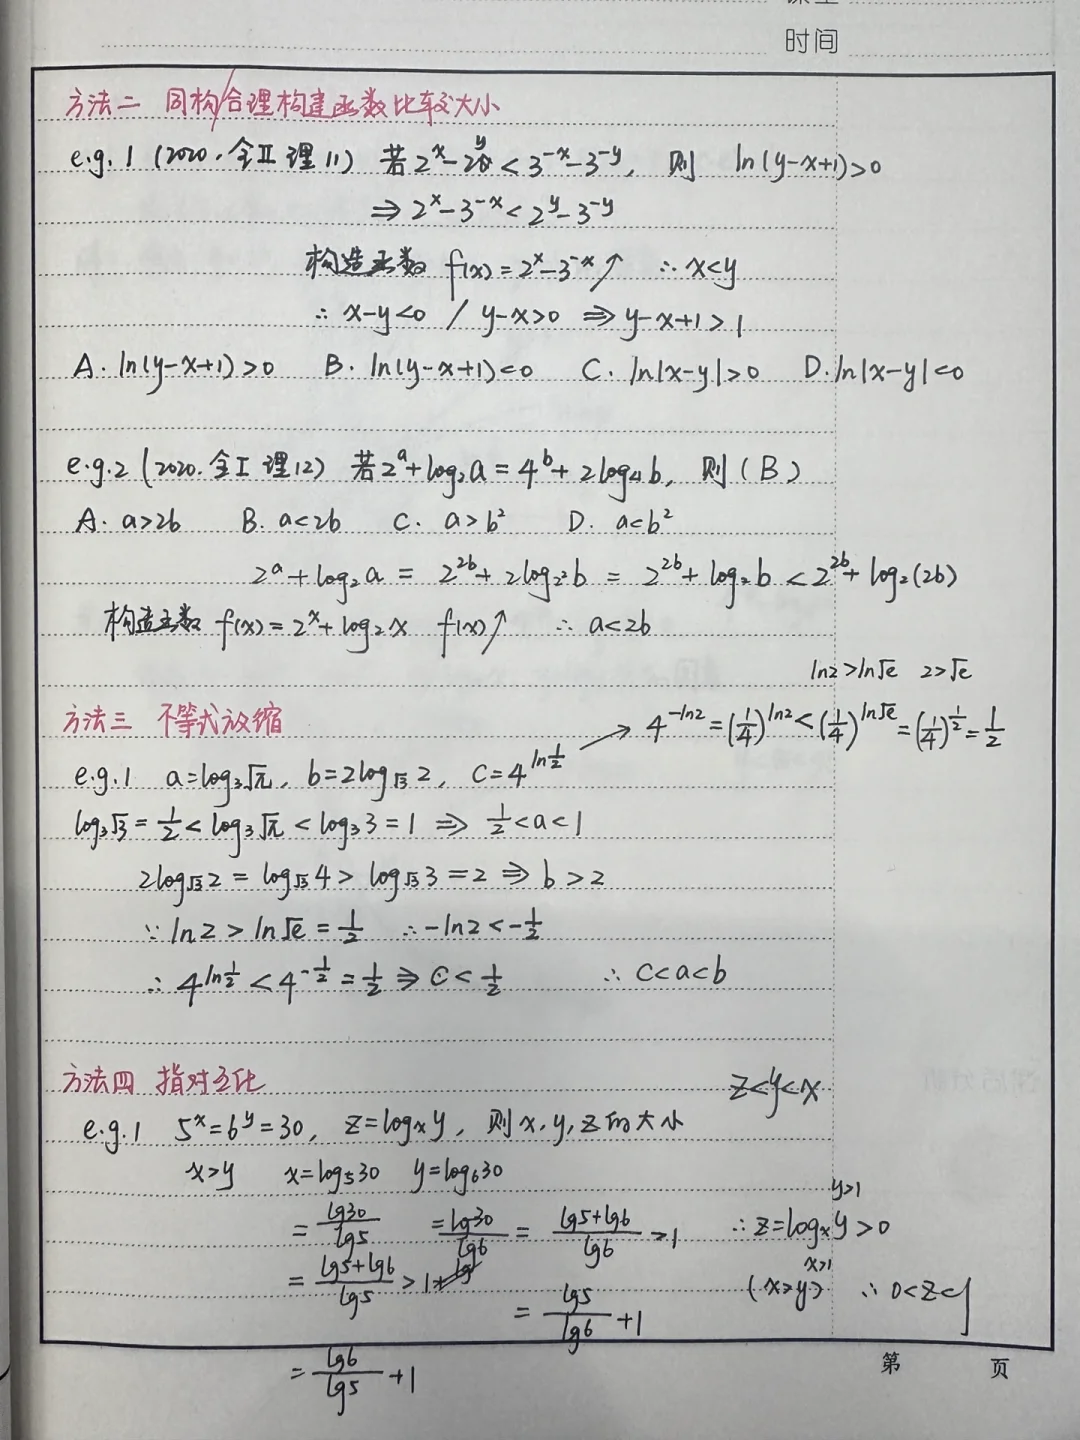 时间
方法二 同构/合理构建函数比较大小
e.g.1 (2020.全Ⅱ理11) 若2^x-2^y<3^{-x}-3^{-y}, 则 ln(y-x+1)>0
⇒2^x-3^{-x}<2^y-3^{-y}
构造函数 f(x)=2^x-3^{-x}↗ ∴x<y
∴ x-y<0 / y-x>0 ⇒ y-x+1>1
A. ln(y-x+1)>0 B. ln(y-x+1)<0 C. ln|x-y|>0 D. ln|x-y|<0
e.g.2 (2020.全Ⅰ理12) 若2^a+log₂a=4^b+2log₄b, 则(B)
A. a>2b B. a<2b C. a>b² D. a<b²
2^a+log₂a = 2^{2b}+2log_{2²}b = 2^{2b}+log₂b < 2^{2b}+log₂(2b)
构造函数 f(x)=2^x+log₂x f(x)↗ ∴ a<2b
ln2>ln√e 2>√e
方法三 不等式放缩
→ 4^{-ln2}=(1/4)^{ln2}<(1/4)^{ln√e}=(1/4)^{1/2}=1/2
e.g.1 a=log₃√π, b=2log_{√3}2, C=4^{ln1/2}
log₃√3=1/2<log₃√π<log₃3=1 ⇒ 1/2<a<1
2log_{√3}2=log_{√3}4>log_{√3}3=2 ⇒ b>2
∵ ln2>ln√e=1/2 ∴-ln2<-1/2
∴ 4^{ln1/2}<4^{-1/2}=1/2 ⇒ C<1/2 ∴ C<a<b
方法四 指对互化
z<y<x
e.g.1 5^x=6^y=30, z=log_x y, 则x,y,z的大小
x>y x=log₅30 y=log₆30
y>1
=lg30/lg5 =lg30/lg6 = (lg5+lg6)/lg6 >1 ∴z=log_x y>0
x>1
=(lg5+lg6)/lg5 >1 (x>y) ∴0<z<1
=lg5/lg6+1
=lg6/lg5+1
第 页